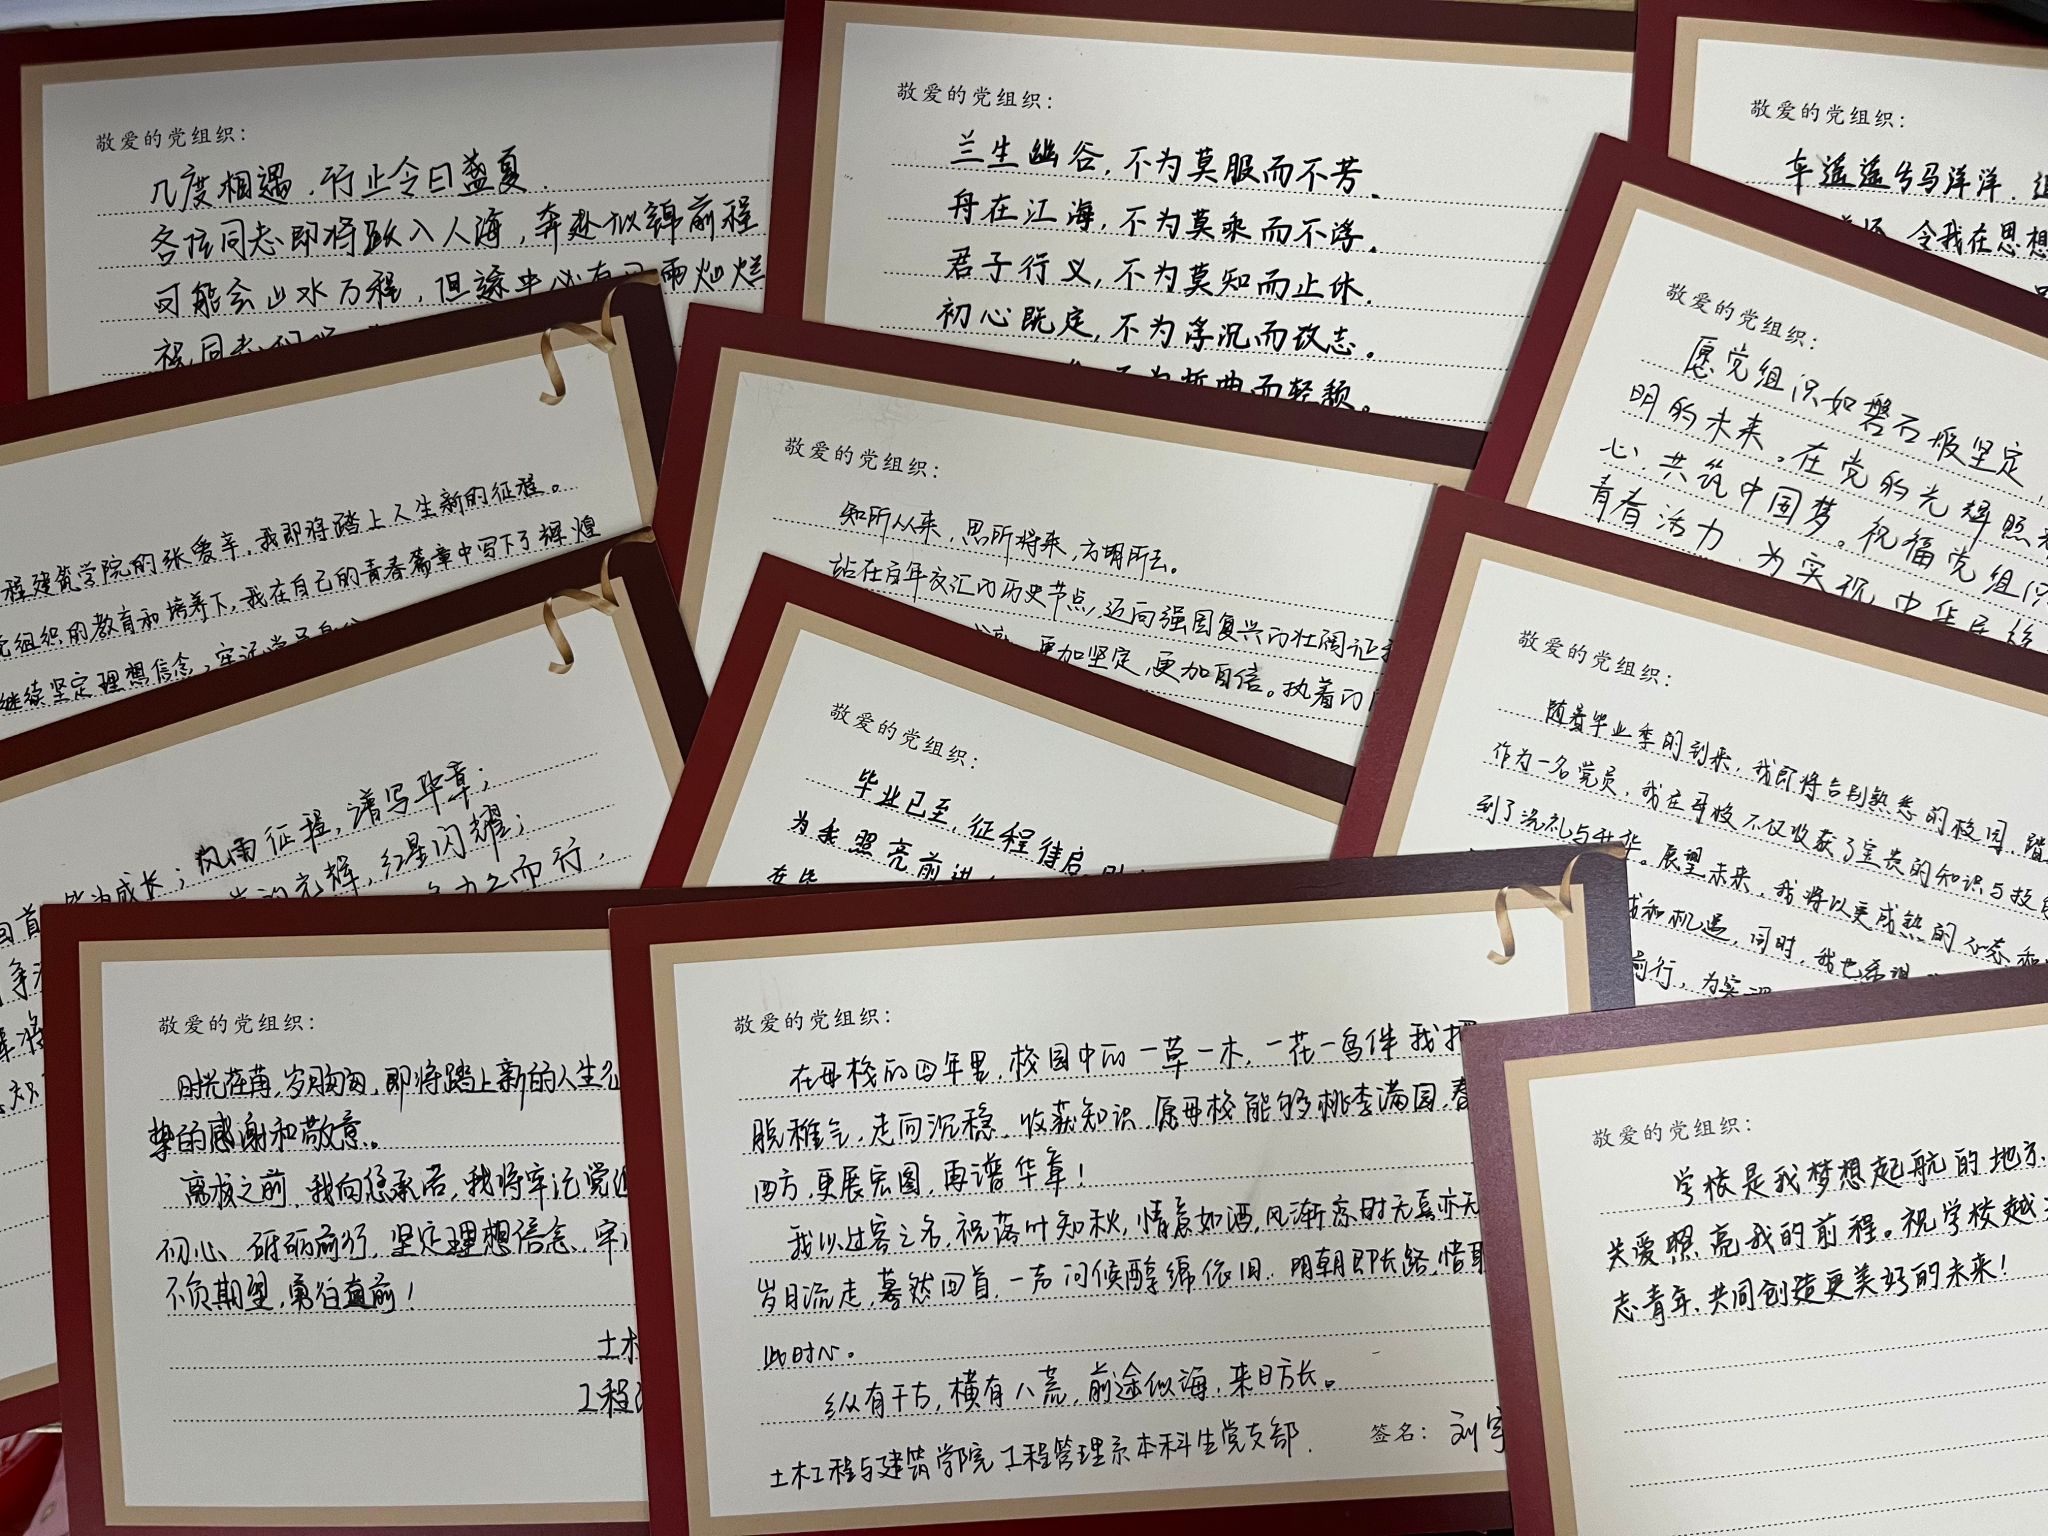 敬爱的党组织：
几度相遇，行止今日盛夏．
各位同志即将跃入人海，奔赴似锦前程
可能会山水万程，但途中必有
雨灿烂
祝同志们
敬爱的党组织：
兰生幽谷，不为莫服而不芳．
舟在江海，不为莫乘而不浮．
君子行义，不为莫知而止休．
初心既定，不为浮沉而改志。
而轻颓。
敬爱的党组织：
车遥遥兮马洋洋，追
令我在思想
敬爱的党组织：
愿党组织如磐石般坚定，
明的未来。在党的光辉照
心，共筑中国梦。祝福党组织
青春活力，为实现中华民族
程建筑学院的张爱辛，我即将踏上人生新的征程。
党组织的教育和培养下，我在自己的青春篇章中写下了辉煌
继续坚定理想信念，牢记党员身份
敬爱的党组织：
知所从来，思所将来，方明所去。
站在百年交汇的历史节点，迈向强国复兴的壮阔征
更加坚定，更加自信。执着的
回首
成长；风雨征程，谱写华章；
光辉，红星闪耀；
而行，
敬爱的党组织：
毕业已至，征程待启
为我照亮前进
敬爱的党组织：
随着毕业季的到来，我即将告别熟悉的校园，踏
作为一名党员，我在母校不仅收获了宝贵的知识与技
到了洗礼与升华。展望未来，我将以更成熟的心态和
和机遇，同时，我也希望
前行，为实现
敬爱的党组织：
时光荏苒，岁月匆匆，即将踏上新的人生
挚的感谢和敬意。
离校之前，我向您承诺，我将牢记党
初心、砥砺前行，坚定理想信念、牢
不负期望，勇往直前！
土木
工程
敬爱的党组织：
在母校的四年里，校园中的一草一木，一花一鸟伴我
脱稚气，走向沉稳，收获知识，愿母校能够桃李满园，春
四方，更展宏图，再谱华章！
我以过客之名，祝落叶知秋，情意如酒，风渐凉时无喜亦无
岁月流走，蓦然回首，一声问候醇绵依旧．明朝即长路，惜取
此时心。
纵有千古，横有八荒，前途似海，来日方长。
签名：刘宇
土木工程与建筑学院工程管理系本科生党支部．
敬爱的党组织：
学校是我梦想起航的地方，
关爱照亮我的前程。祝学校越
志青年，共同创造更美好的未来！